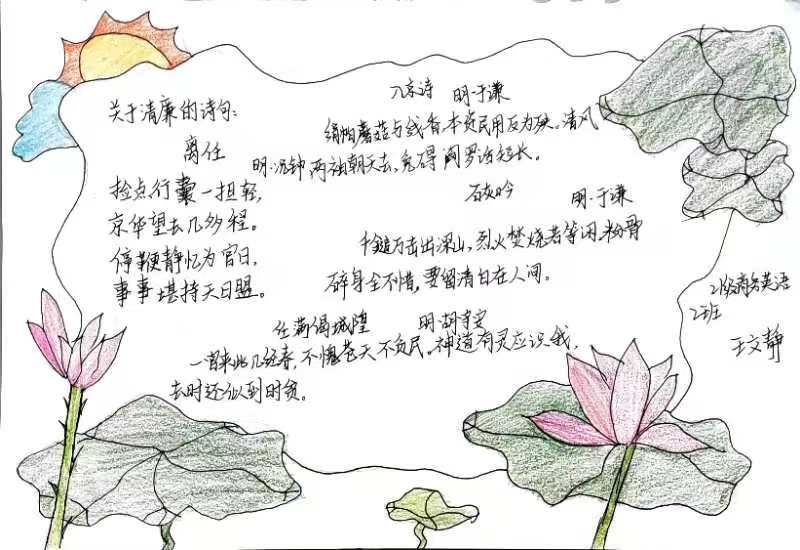 关于清廉的诗句:
离任
明·沉钟
捡点行囊一担轻,
京华望去几多程。
停鞭静忆为官日,
事事堪持天日盟。
入京诗 明·于谦
绢帕蘑菇与线香,本负民用反为殃。清风
两袖朝天去,免得阎罗话短长。
石灰吟 明·于谦
千锤万击出深山,烈火焚烧若等闲。粉骨
碎身全不惜,要留清白在人间。
任满谒城隍 明·胡守安
一官来此几经春,不愧苍天不负民。神道有灵应识我,
去时还似到时贫。
21级商务英语
2班
王文静